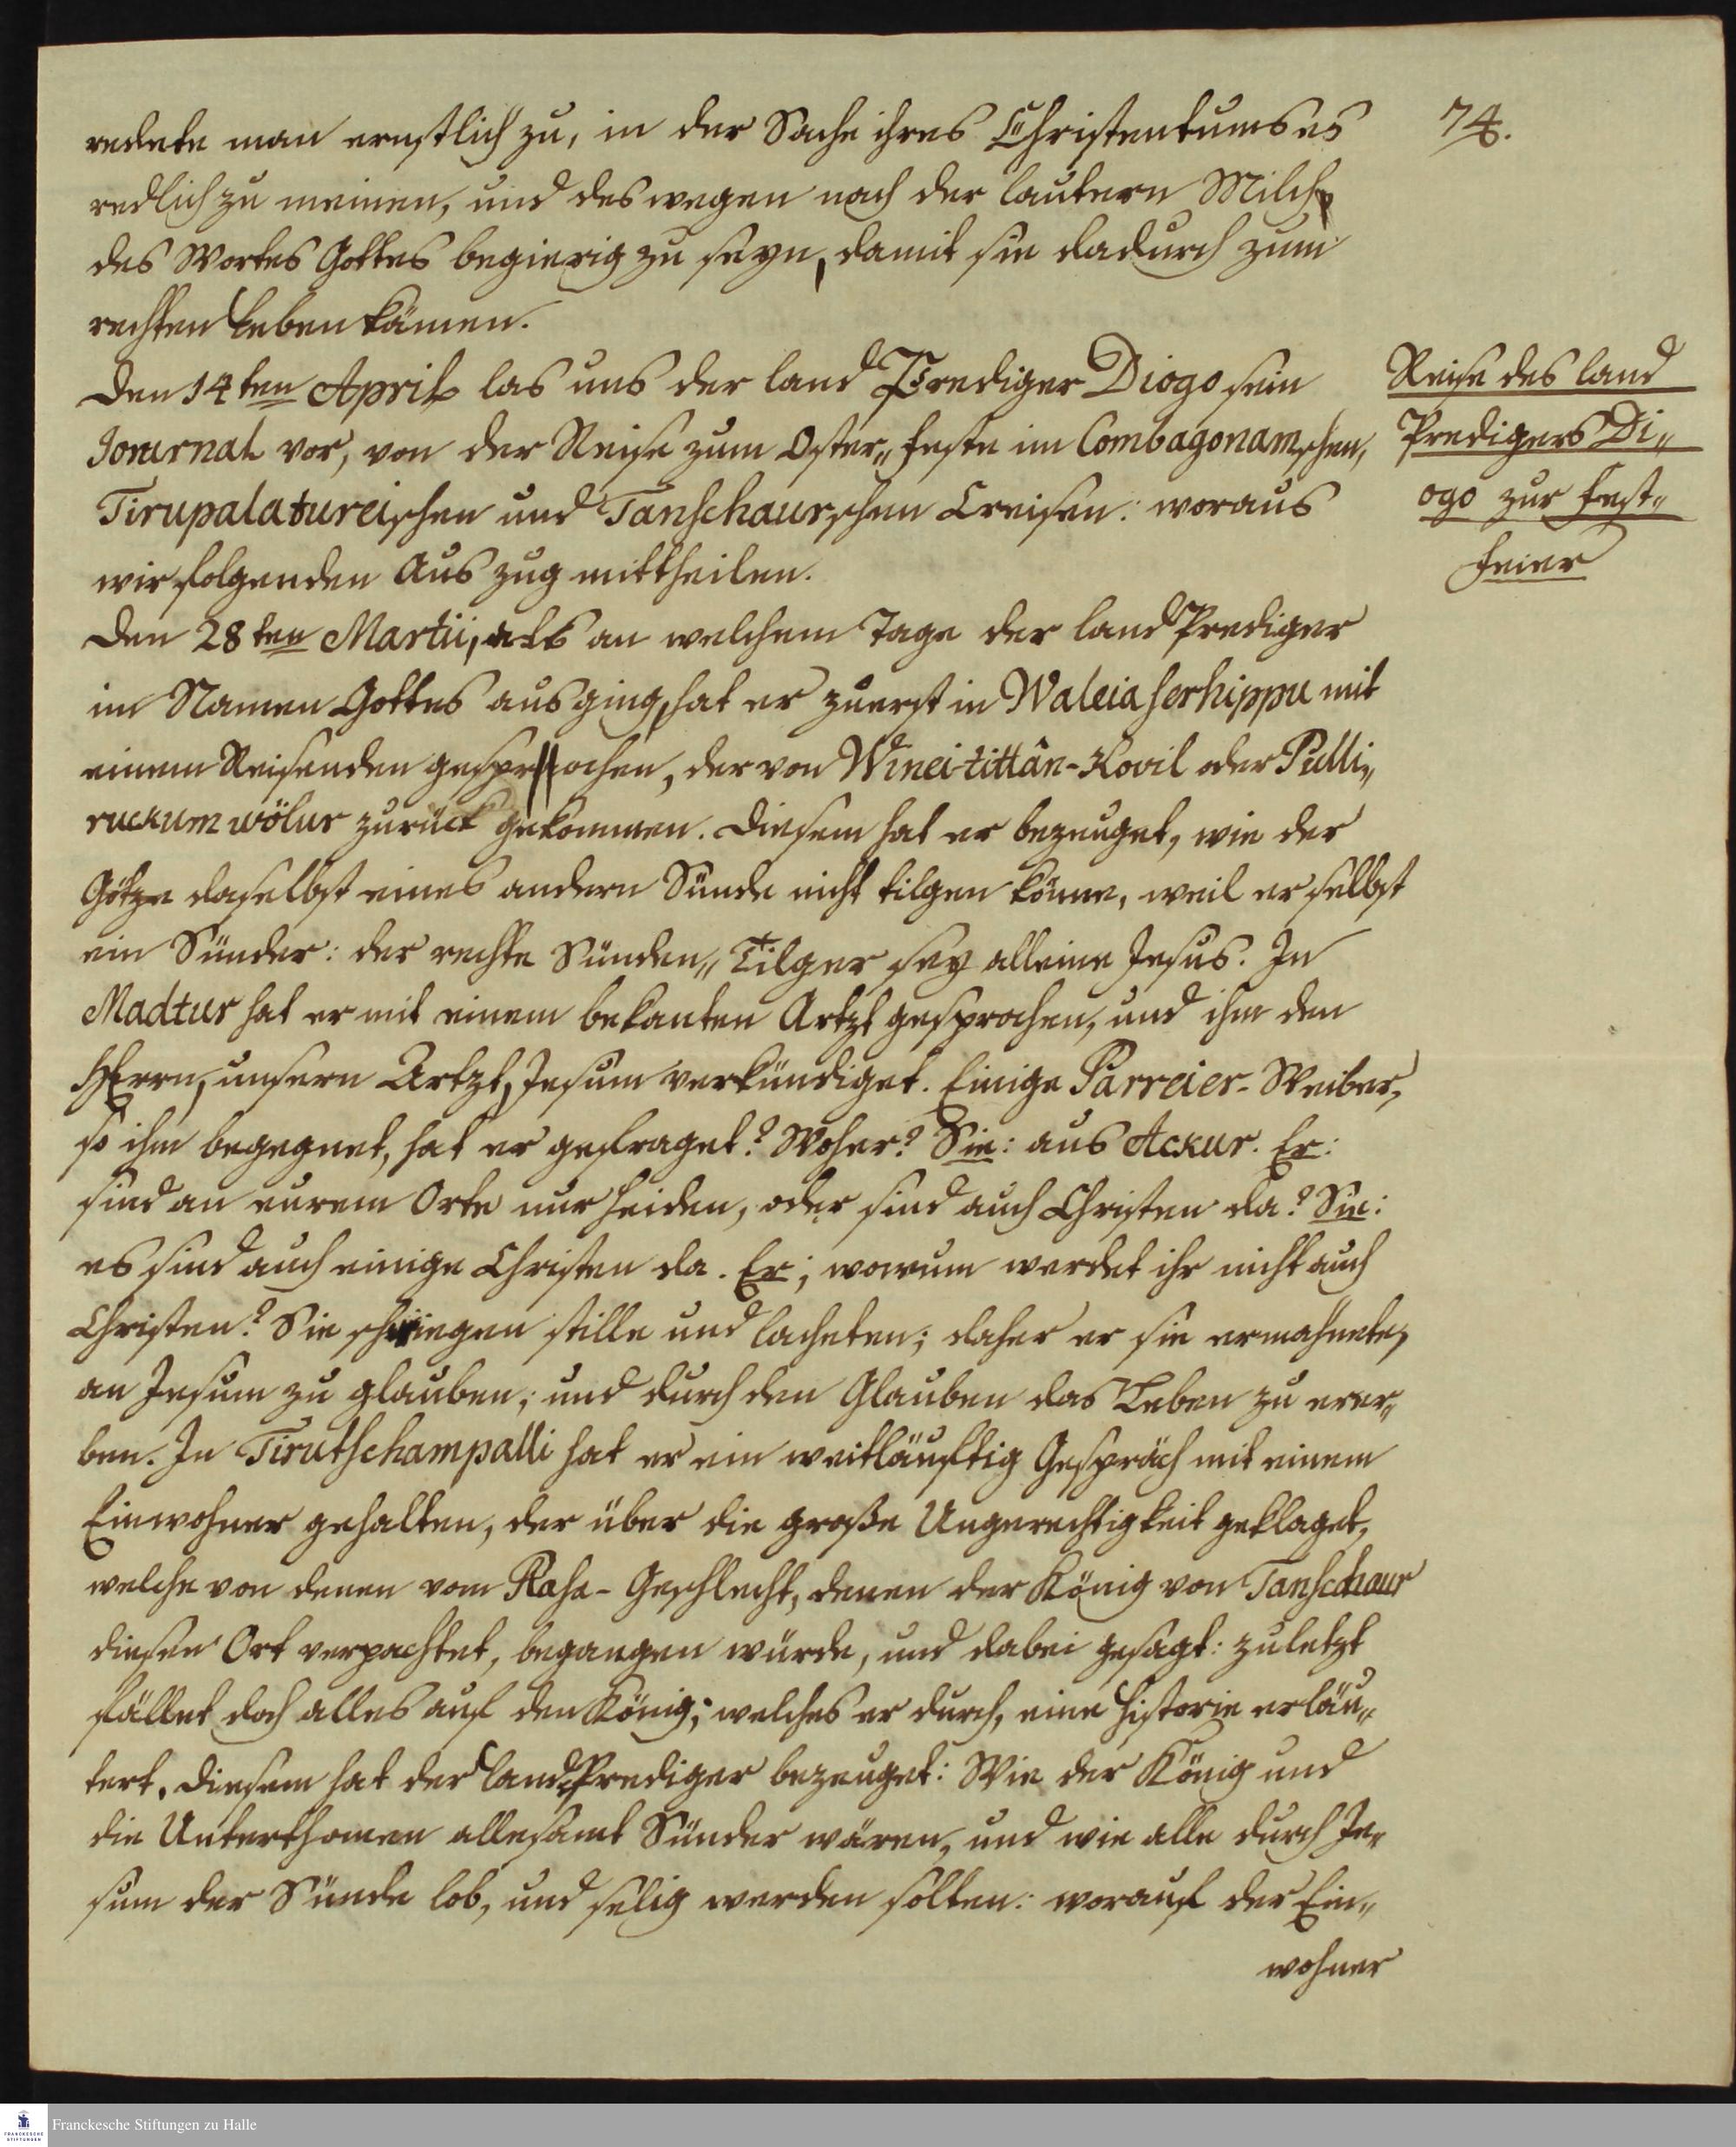 74.
redete man ernstlich zu, in der Sache ihres Christentums es
redlich zu meinen, und deswegen nach der lautern Milch
des Wortes Gottes begierig zu seyn, damit sie dadurch zum
rechten Leben kämen.
Den 14ten April las uns der land Prediger Diogo sein
Journal vor, von der Reise zum Oster„ feste im Combagonamschen,
Tirupalatureischen und Tanschaurschen Creisen: woraus
wir folgenden Auszug mittheilen.
Reise des land
Predigers Di„
ogo zur Fest„
feier
Den 28ten Martii, als an welchem Tage der land Prediger
im Namen Gottes ausging, hat er zuerst in Waleiaserhippu mit
einem Reisenden gesprochen, der von Winei-tittân-Kovil oder Pulli„
ruckumwölur zurück gekommen. Diesem hat er bezeuget, wie der
Götze daselbst eines andern Sünde nicht tilgen könne, weil er selbst
ein Sünder: der rechte Sünden„ Tilger sey alleine Jesus. In
Madtur hat er mit einem bekanten Artzt gesprochen, und ihm den
HErrn, unsern Artzt, Jesum verkündiget. Einige Parreier-Weiber,
so ihm begegnet, hat er gefraget? Woher? Sie: aus Ackur. Er:
sind an eurem Orte nur Heiden, oder sind auch Christen da? Sie:
es sind auch einige Christen da. Er; warum werdet ihr nicht auch
Christen? Sie schwiegen stille und lacheten; daher er sie ermahnete,
an Jesum zu glauben; und durch den Glauben das Leben zu erer„
ben. In Tirutschampalli hat er ein weitläuftig Gespräch mit einem
Einwohner gehalten, der über die große Ungerechtigkeit geklaget,
welche von denen vom Rasa-Geschlecht, denen der König von Tanschaur
diesen Ort verpachtet, begangen würde, und dabei gesagt: zuletzt
fället doch alles auf den König; welches er durch, eine Historie erläu„
tert. Diesem hat der land Prediger bezeuget: Wie der König und
die Unterthanen allesamt Sünder wären, und wie alle durch Je„
sum der Sünde los, und selig werden solten: worauf der Ein„
wohner
Franckesche Stiftungen zu Halle
FRANCKESCHE
STIFTUNGEN